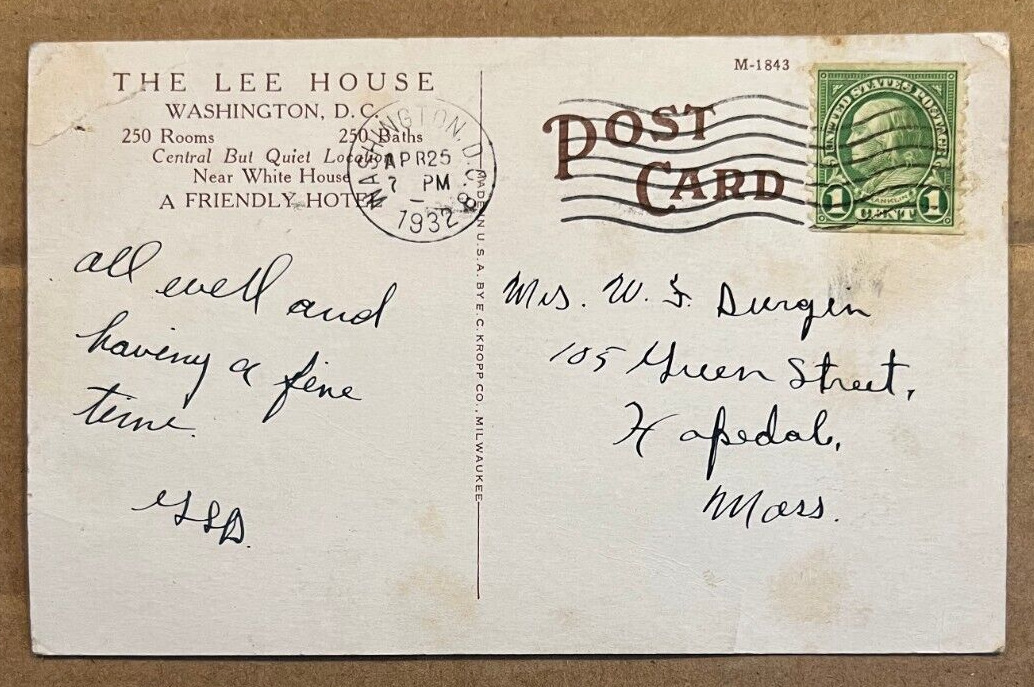 THE LEE HOUSE
WASHINGTON, D. C.
250 Rooms 250 Baths
Central But Quiet Location
Near White House
A FRIENDLY HOTEL
WASHINGTON, D.C.
APR 25
7 PM
1932
M-1843
POST
CARD
UNITED STATES POSTAGE
FRANKLIN
1 CENT 1
MADE IN U.S.A. BY E. C. KROPP CO., MILWAUKEE
all well and
having a fine
time.
Mrs. W. F. Durgin
105 Green Street,
Hopedale,
Mass.